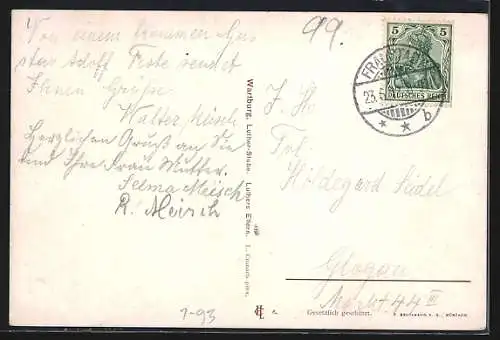 99.
Von einem frommen Gus
tav Adolf Feste sendet
Ihnen Grüße
Walter Meisch
Herzlichen Gruß an Sie
und Ihre Frau Mutter.
Selma Meisch
R. Meisch
1-93
Wartburg, Luther-Stube. Luthers Eltern. L. Cranach pinx.
5 5
DEUTSCHES REICH
FRAU
23.
b
Frl.
Hildegard Seidel
Glogau
Markt 44 III
Gesetzlich geschützt.
MÜNCHEN